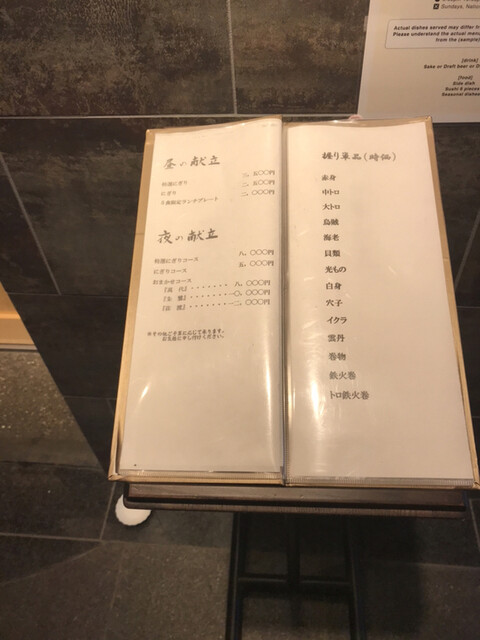 Sundays, Natio
Actual dishes served may differ fr
Please understand the actual menu
from the (sample)
[drink]
Sake or Draft beer or D
[food]
Side dish
Sushi 6 pieces
Seasonal dishes
昼の献立
特選にぎり 三、五〇〇円
にぎり 二、五〇〇円
千両限定ランチプレート 二、〇〇〇円
夜の献立
特選にぎりコース 八、〇〇〇円
にぎりコース 五、〇〇〇円
おまかせコース
八、〇〇〇円
一〇、〇〇〇円
一二、〇〇〇円
※その他ご予算に応じてあります。
お気軽に申し付けください。
握り単品(時価)
赤身
中トロ
大トロ
烏賊
海老
貝類
光もの
白身
穴子
イクラ
雲丹
巻物
鉄火巻
トロ鉄火巻